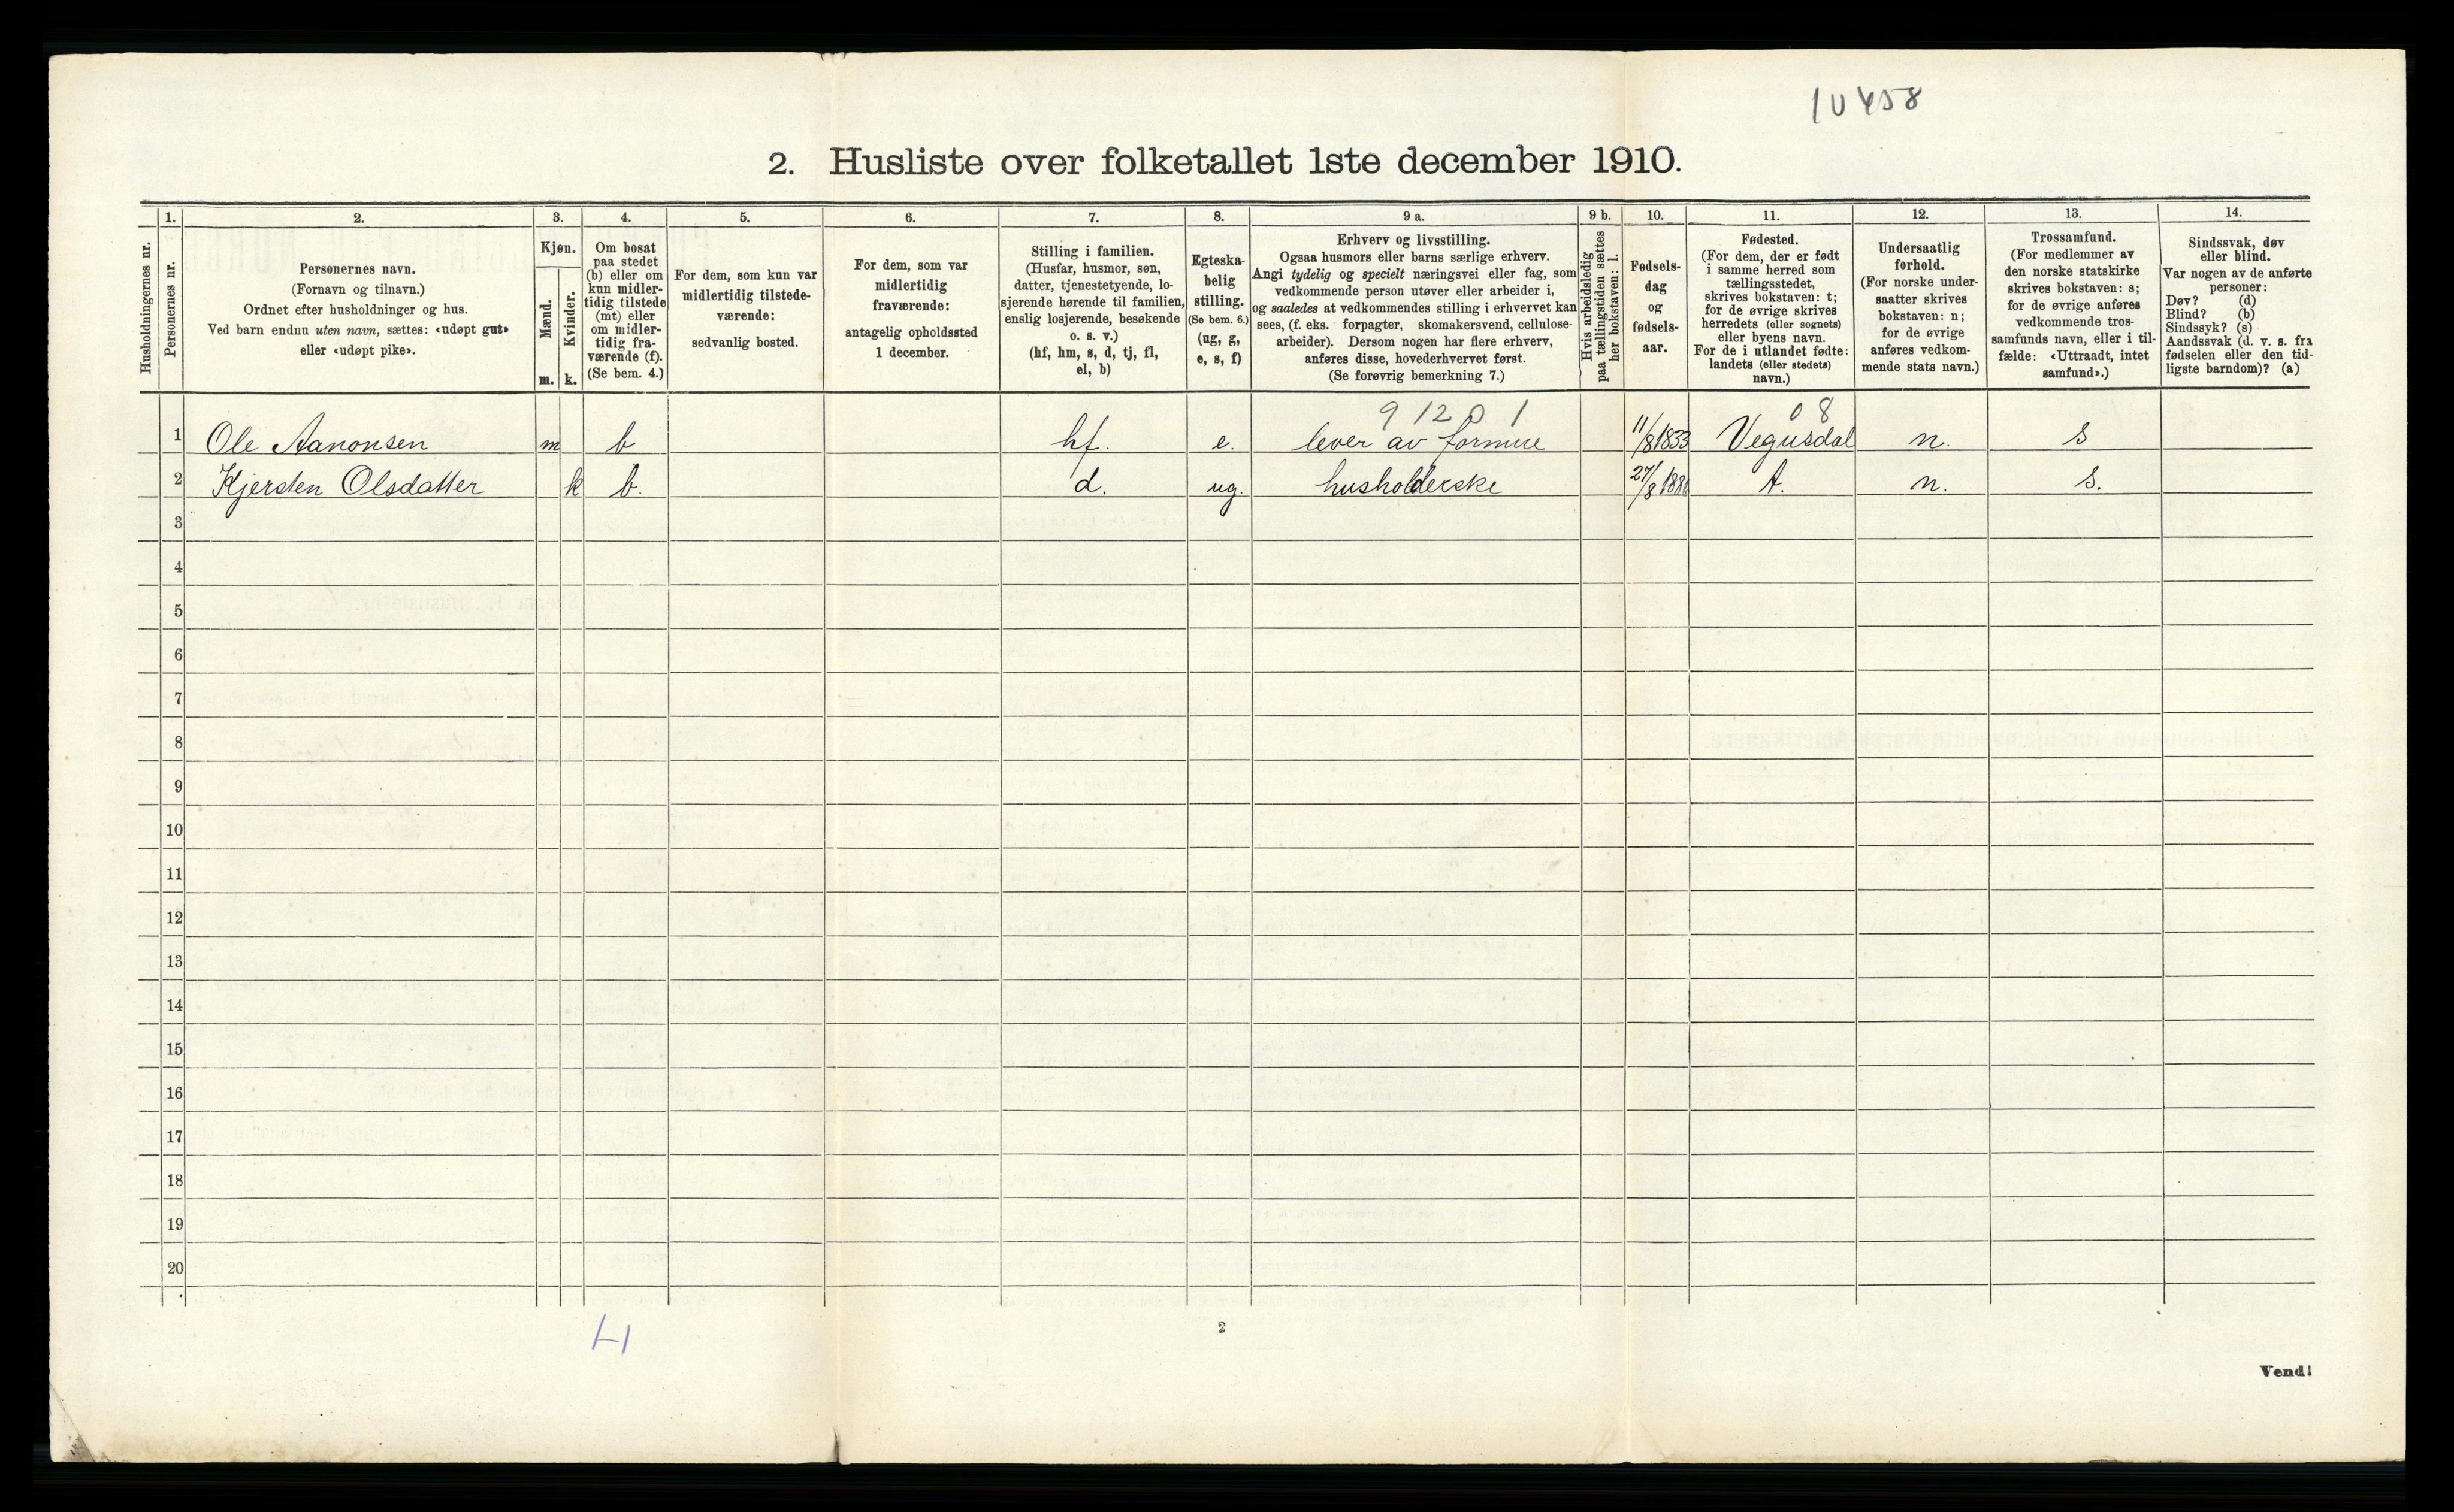 10458
2. Husliste over folketallet 1ste december 1910.
Husholdningernes nr.
1.
Personernes nr.
2.
Personernes navn.
(Fornavn og tilnavn.)
Ordnet efter husholdninger og hus.
Ved barn endnu uten navn, sættes: «udøpt gut»
eller «udøpt pike».
3.
Kjøn.
Mænd.
Kvinder.
m. k.
4.
Om bosat
paa stedet
(b) eller om
kun midler-
tidig tilstede
(mt) eller
om midler-
tidig fra-
værende (f).
(Se bem. 4.)
5.
For dem, som kun var
midlertidig tilstede-
værende:
sedvanlig bosted.
6.
For dem, som var
midlertidig
fraværende:
antagelig opholdssted
1 december.
7.
Stilling i familien.
(Husfar, husmor, søn,
datter, tjenestetyende, lo-
sjerende hørende til familien,
enslig losjerende, besøkende
o. s. v.)
(hf, hm, s, d, tj, fl,
el, b)
8.
Egteska-
belig
stilling.
(Se bem. 6.)
(ug, g,
e, s, f)
9 a.
Erhverv og livsstilling.
Ogsaa husmors eller barns særlige erhverv.
Angi tydelig og specielt næringsvei eller fag, som
vedkommende person utøver eller arbeider i,
og saaledes at vedkommendes stilling i erhvervet kan
sees, (f. eks. forpagter, skomakersvend, cellulose-
arbeider). Dersom nogen har flere erhverv,
anføres disse, hovederhvervet først.
(Se forøvrig bemerkning 7.)
9 b.
Hvis arbeidsledig
paa tællingstiden sættes
her bokstaven: l.
10.
Fødsels-
dag
og
fødsels-
aar.
11.
Fødested.
(For dem, der er født
i samme herred som
tællingsstedet,
skrives bokstaven: t;
for de øvrige skrives
herredets (eller sognets)
eller byens navn.
For de i utlandet fødte:
landets (eller stedets)
navn.)
12.
Undersaatlig
forhold.
(For norske under-
saatter skrives
bokstaven: n;
for de øvrige
anføres vedkom-
mende stats navn.)
13.
Trossamfund.
(For medlemmer av
den norske statskirke
skrives bokstaven: s;
for de øvrige anføres
vedkommende tros-
samfunds navn, eller i til-
fælde: «Uttraadt, intet
samfund».)
14.
Sindssvak, døv
eller blind.
Var nogen av de anførte
personer:
Døv? (d)
Blind? (b)
Sindssyk? (s)
Aandssvak (d. v. s. fra
fødselen eller den tid-
ligste barndom)? (a)
91201 08
1 Ole Aanonsen m b hf. e. lever av formue 11/8 1833 Vegusdal n. s
2 Kjersten Olsdatter k b. d. ug. husholderske 27/8 t. n. s.
3
4
5
6
7
8
9
10
11
12
13
14
15
16
17
18
19
20
2
Vend!